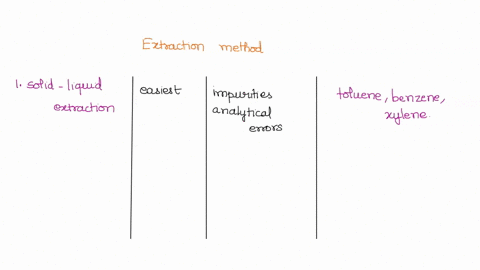 Extraction method
1. solid-liquid
extraction
easiest
impurities
analytical
errors
toluene, benzene,
xylene